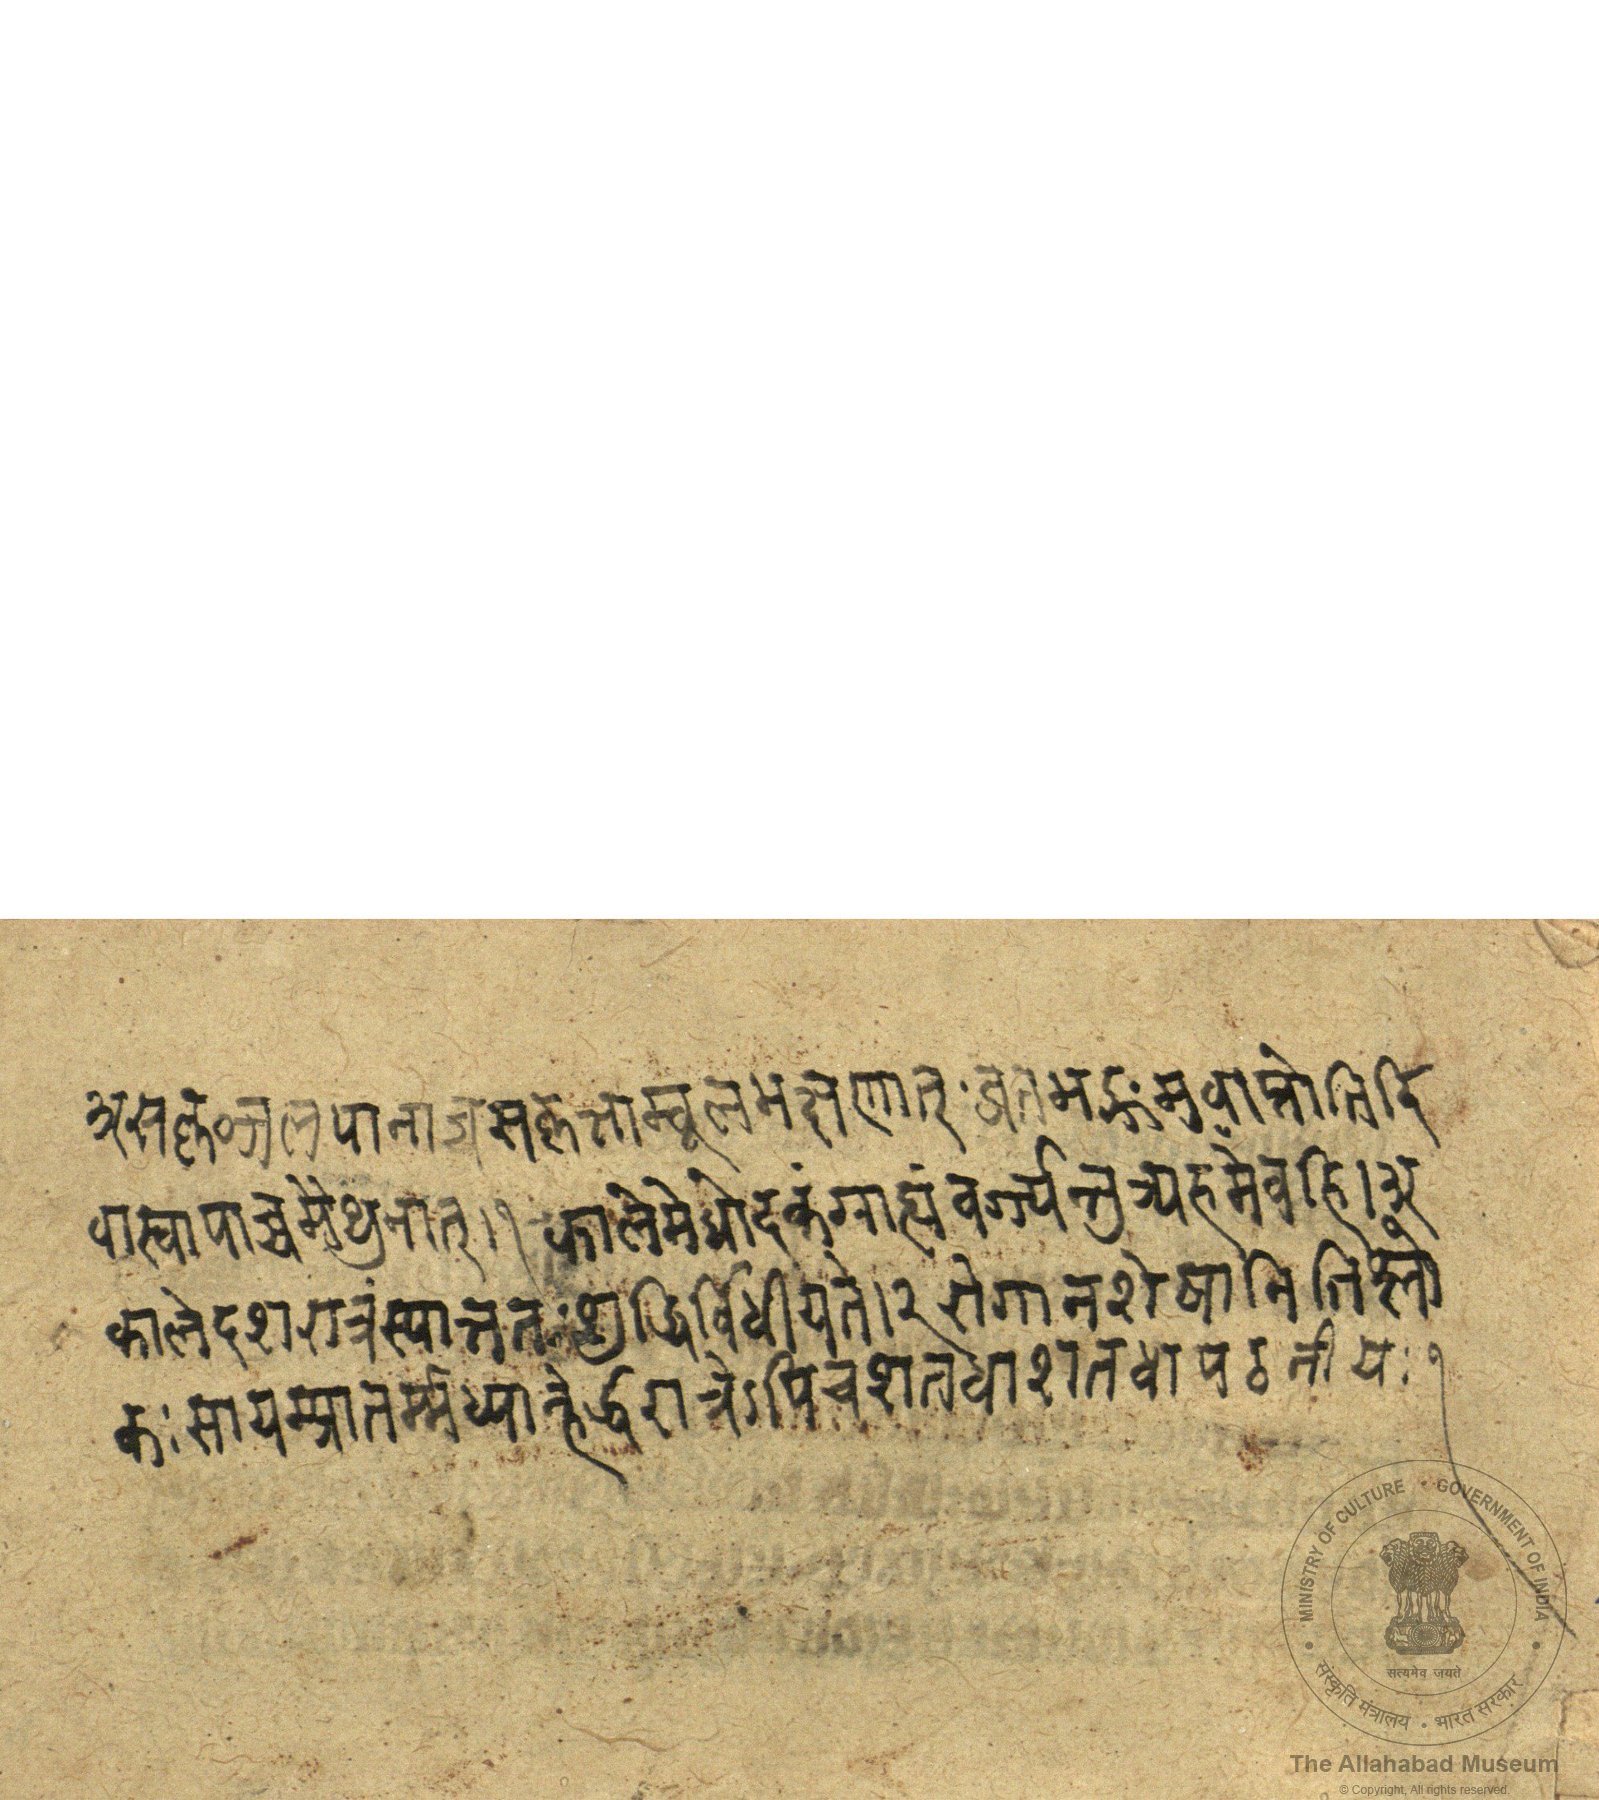 असकृज्जलपानाच्चसकृत्ताम्बूलभक्षणात् व्रतभङ्गमवाप्नोतिदि
वास्वापाच्चमैथुनात्।१ कालेमेघोदकंग्राह्यंवर्ज्यन्तुत्र्यहमेवहि।अ
कालेदशरात्रंस्यात्ततःशुद्धिर्विधीयते।२ रोगानशेषानितिश्लो
कःसायम्प्रातर्मध्याह्नेर्द्धरात्रेऽपिचशतधाशतधापठनीयः१
MINISTRY OF CULTURE • GOVERNMENT OF INDIA
सत्यमेव जयते
संस्कृति मंत्रालय • भारत सरकार
The Allahabad Museum
© Copyright, All rights reserved.